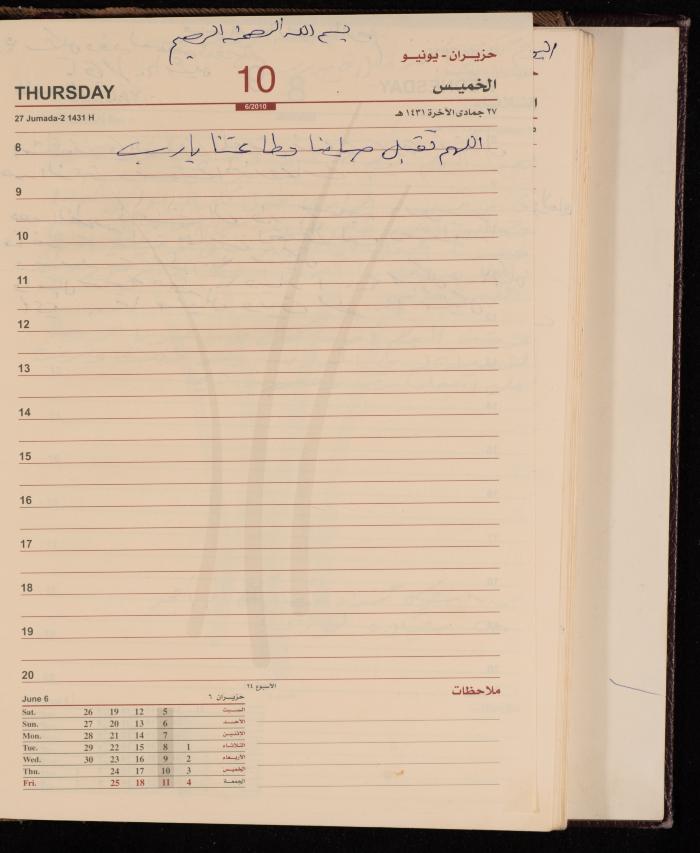 بسم الله الرحمن الرحيم
حزيران - يونيو
THURSDAY 10 الخميس
6/2010
27 Jumada-2 1431 H ٢٧ جمادى الآخرة ١٤٣١ هـ
8 اللهم تقبل صيامنا وطاعتنا يارب
9
10
11
12
13
14
15
16
17
18
19
20
الأسبوع ٢٤
ملاحظات
June 6 حزيران ٦
Sat. 26 19 12 5 السبت
Sun. 27 20 13 6 الأحد
Mon. 28 21 14 7 الاثنين
Tue. 29 22 15 8 1 الثلاثاء
Wed. 30 23 16 9 2 الأربعاء
Thu. 24 17 10 3 الخميس
Fri. 25 18 11 4 الجمعة